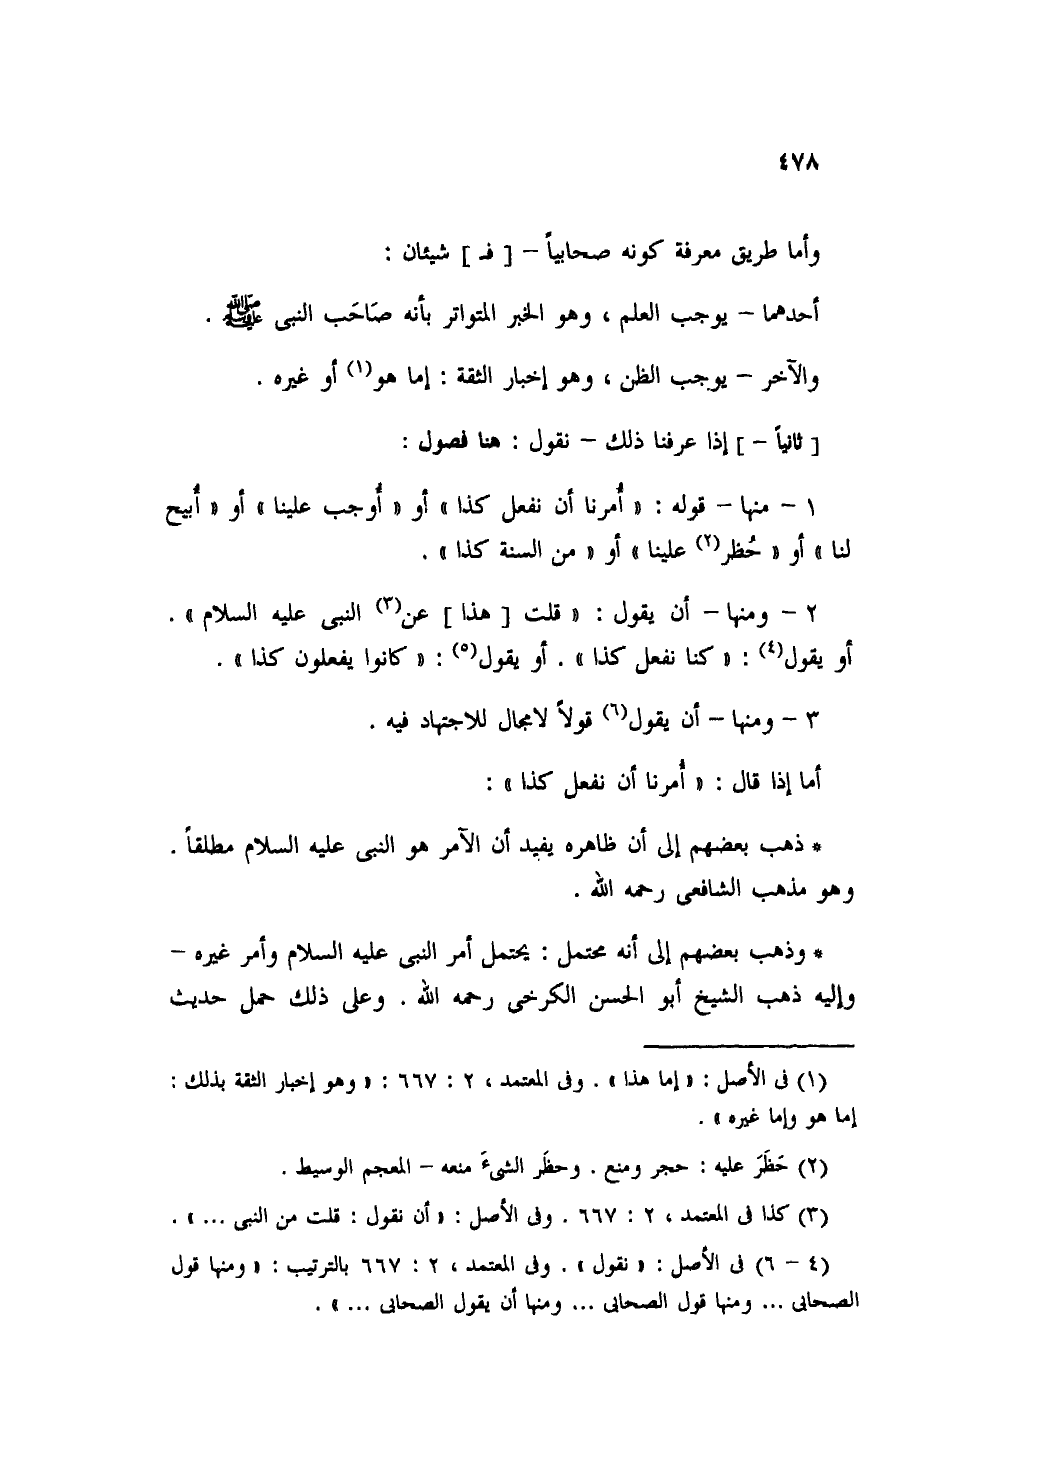 ٤٧٨
وأما طريق معرفة كونه صحابياً – [ فـ ] شيئان :
أحدهما – يوجب العلم ، وهو الخبر المتواتر بأنه صَاحَب النبى ﷺ .
والآخر – يوجب الظن ، وهو إخبار الثقة : إما هو(١) أو غيره .
[ ثانياً – ] إذا عرفنا ذلك – نقول : هنا فصول :
١ – منها – قوله : « أُمرنا أن نفعل كذا » أو « أُوجب علينا » أو « أُبيح
لنا » أو « حُظر(٢) علينا » أو « من السنة كذا » .
٢ – ومنها – أن يقول : « قلت [ هذا ] عن(٣) النبى عليه السلام » .
أو يقول(٤) : « كنا نفعل كذا » . أو يقول(٥) : « كانوا يفعلون كذا » .
٣ – ومنها – أن يقول(٦) قولاً لامجال للاجتهاد فيه .
أما إذا قال : « أُمرنا أن نفعل كذا » :
* ذهب بعضهم إلى أن ظاهره يفيد أن الآمر هو النبى عليه السلام مطلقاً .
وهو مذهب الشافعى رحمه الله .
* وذهب بعضهم إلى أنه محتمل : يحتمل أمر النبى عليه السلام وأمر غيره –
وإليه ذهب الشيخ أبو الحسن الكرخى رحمه الله . وعلى ذلك حمل حديث
(١) فى الأصل : « إما هذا » . وفى المعتمد ، ٢ : ٦٦٧ : « وهو إخبار الثقة بذلك :
إما هو وإما غيره » .
(٢) حَظَرَ عليه : حجر ومنع . وحظَر الشىءَ منعه – المعجم الوسيط .
(٣) كذا فى المعتمد ، ٢ : ٦٦٧ . وفى الأصل : « أن نقول : قلت من النبى ... » .
(٤ – ٦) فى الأصل : « نقول » . وفى المعتمد ، ٢ : ٦٦٧ بالترتيب : « ومنها قول
الصحابى ... ومنها قول الصحابى ... ومنها أن يقول الصحابى ... » .